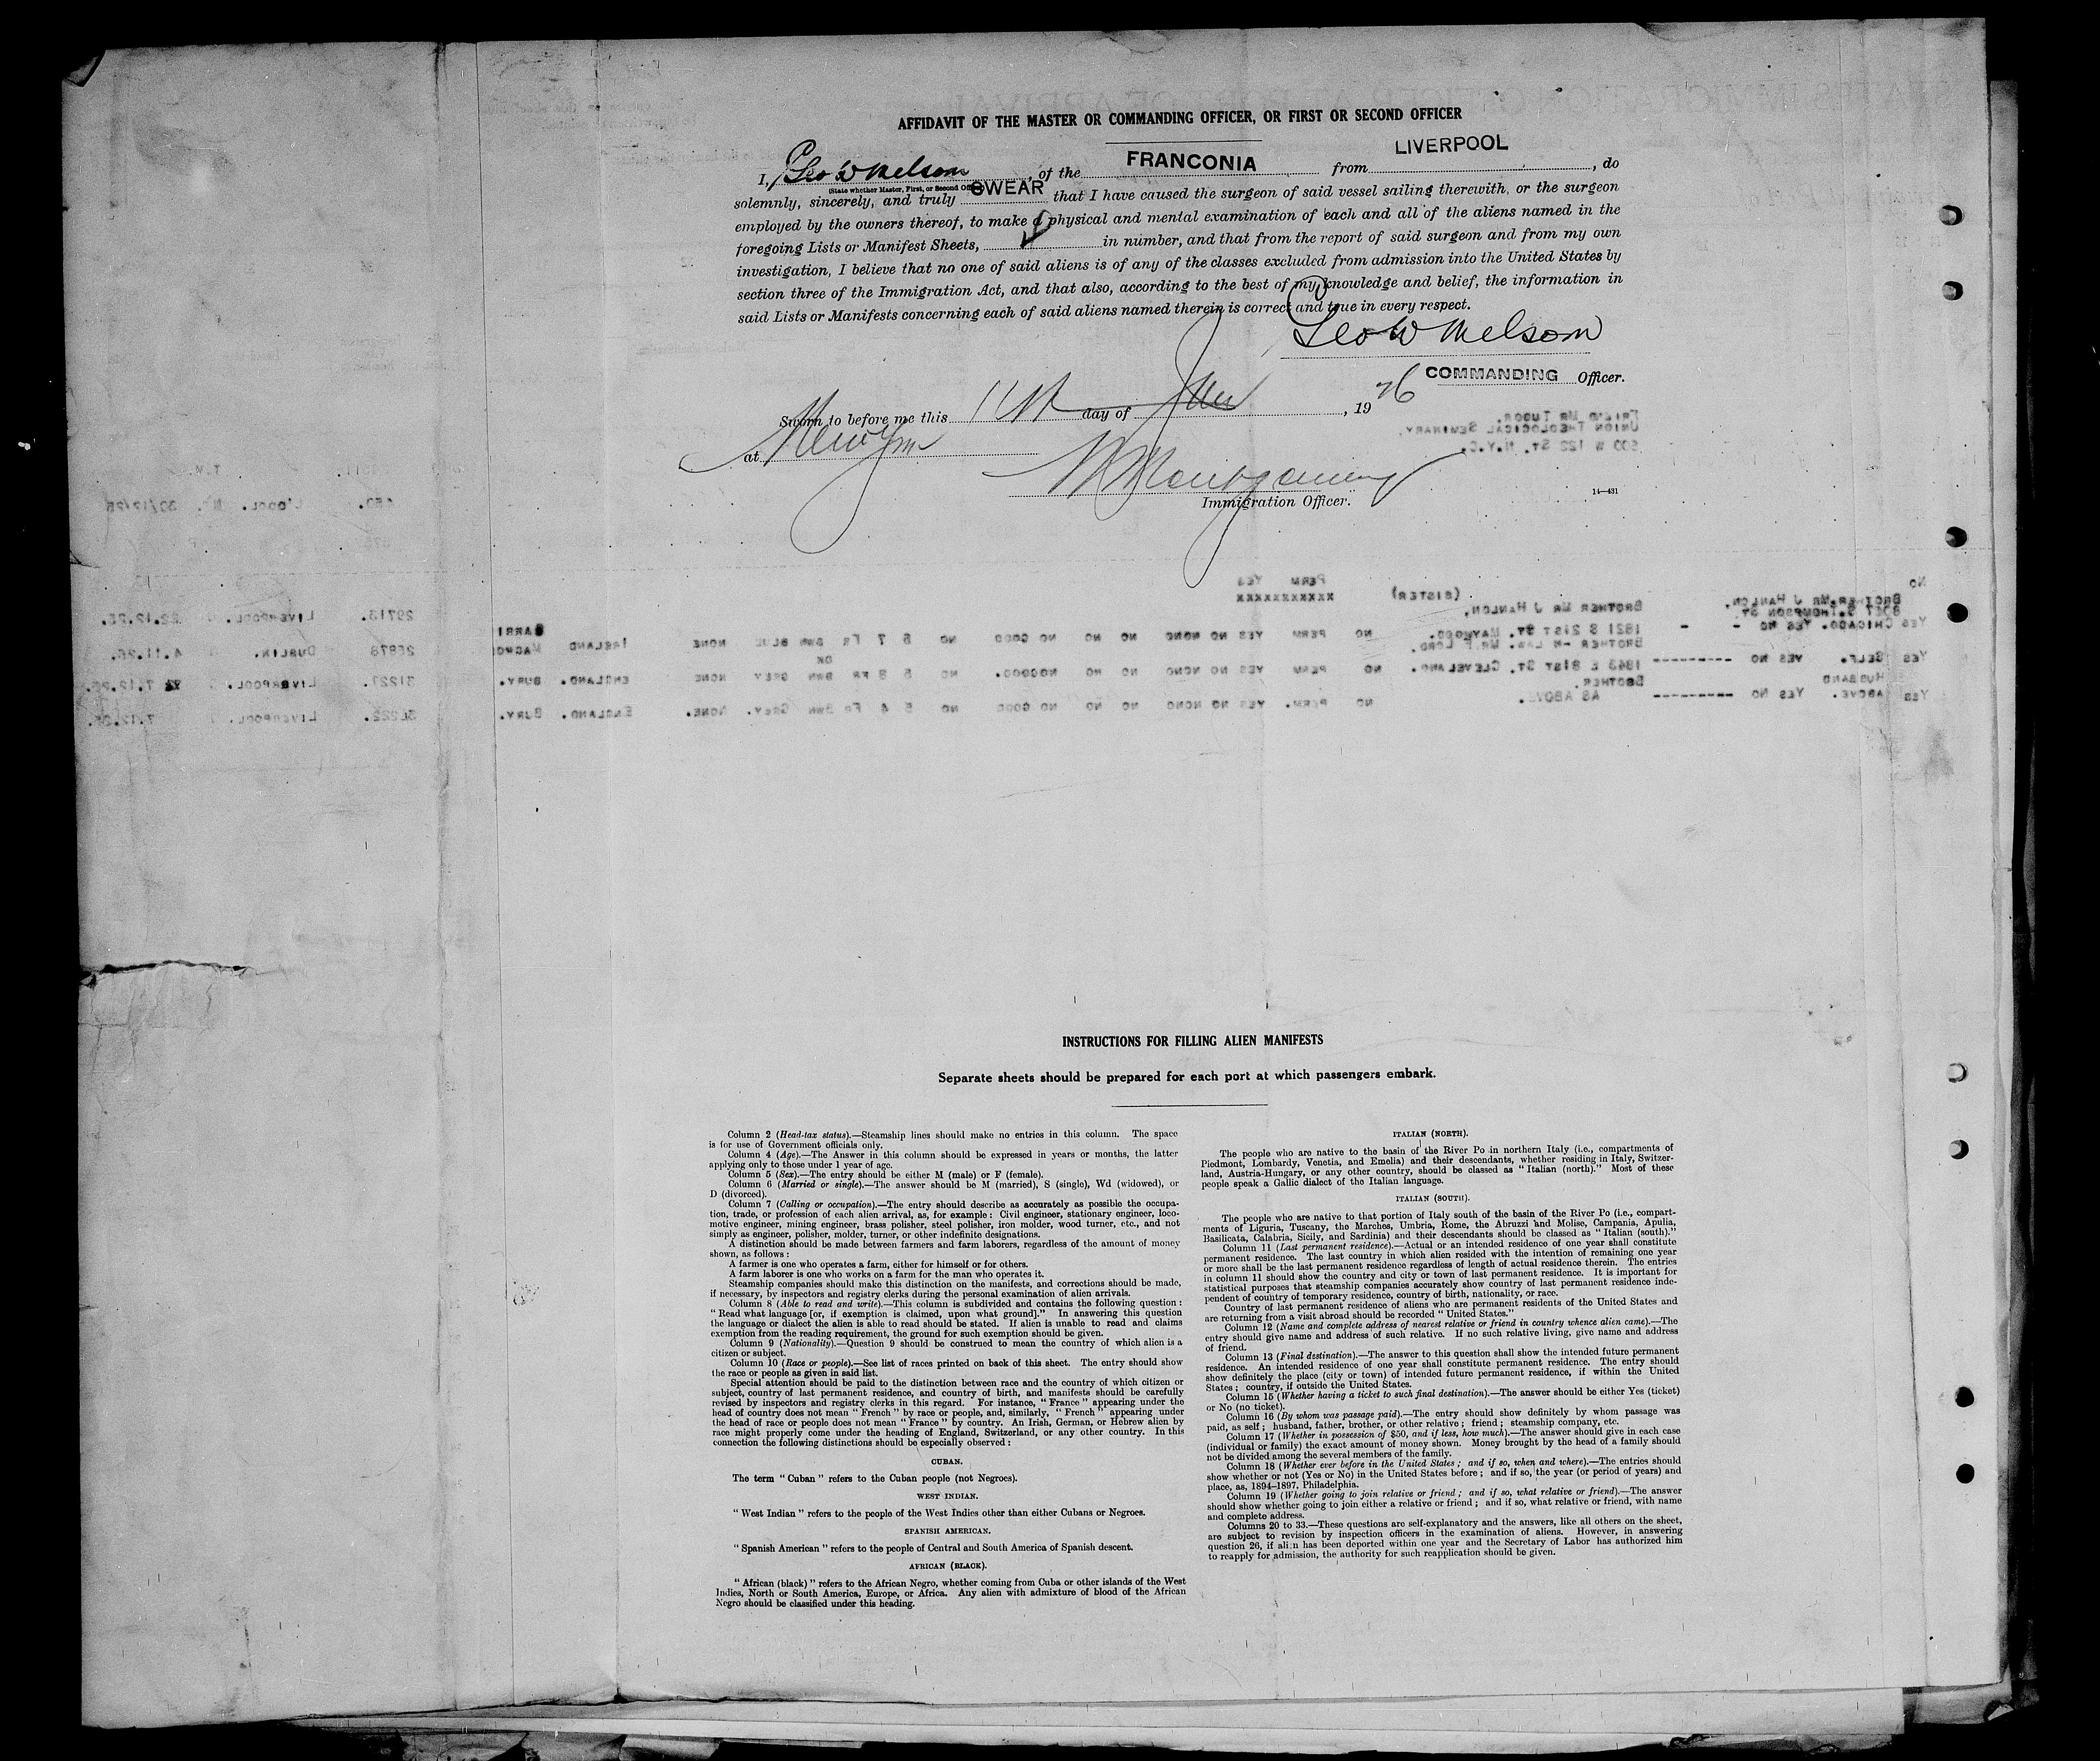 AFFIDAVIT OF THE MASTER OR COMMANDING OFFICER, OR FIRST OR SECOND OFFICER
I, Geo W Melsom, of the FRANCONIA from LIVERPOOL, do
(State whether Master, First, or Second Officer)
solemnly, sincerely, and truly SWEAR that I have caused the surgeon of said vessel sailing therewith, or the surgeon
employed by the owners thereof, to make a physical and mental examination of each and all of the aliens named in the
foregoing Lists or Manifest Sheets, in number, and that from the report of said surgeon and from my own
investigation, I believe that no one of said aliens is of any of the classes excluded from admission into the United States by
section three of the Immigration Act, and that also, according to the best of my knowledge and belief, the information in
said Lists or Manifests concerning each of said aliens named therein is correct and true in every respect.
Geo W Melsom
COMMANDING Officer.
Sworn to before me this day of , 1926
at New York
Montgomery
Immigration Officer.
14—431
FRIEND MR TUDOR.
UNION THEOLOGICAL SEMINARY.
500 W 122 ST. N.Y.C.
PERM YES
XXXXXXXXXXX
(SISTER)
NO
BROTHER MR J HANLON,
BROTHER MR J HANLON,
29713. LIVERPOOL. 22.12.25.
IRELAND
NONE BLUE BWN FR 7 5 NO GOOD NO NO NO NONO YES PERM NO 1821 S 21ST ST. MAYWOOD. - - NO YES CHICAGO. YES
BROTHER -N LAW. MR F LORD.
26878 DUBLIN. 4.11.25.
31221. LIVERPOOL. 7.12.25.
BURY. ENGLAND. NONE GREY BWN FR 8 5 NO NOGOOD. NO NO NO NONO YES PERM NO 1843 E 81ST ST. CLEVELAND. NO YES SELF. YES
BROTHER.
HUSBAND
LIVERPOOL. 7.12.25.
BURY. ENGLAND. NONE. GREY. BWN FR 4 5 NO NO GOOD NO NO NO NONO YES PERM. NO AS ABOVE. NO YES ABOVE. YES
INSTRUCTIONS FOR FILLING ALIEN MANIFESTS
Separate sheets should be prepared for each port at which passengers embark.
Column 2 (Head-tax status).—Steamship lines should make no entries in this column. The space
is for use of Government officials only.
Column 4 (Age).—The Answer in this column should be expressed in years or months, the latter
applying only to those under 1 year of age.
Column 5 (Sex).—The entry should be either M (male) or F (female).
Column 6 (Married or single).—The answer should be M (married), S (single), Wd (widowed), or
D (divorced).
Column 7 (Calling or occupation).—The entry should describe as accurately as possible the occupa-
tion, trade, or profession of each alien arrival, as, for example: Civil engineer, stationary engineer, loco-
motive engineer, mining engineer, brass polisher, steel polisher, iron molder, wood turner, etc., and not
simply as engineer, polisher, molder, turner, or other indefinite designations.
A distinction should be made between farmers and farm laborers, regardless of the amount of money
shown, as follows:
A farmer is one who operates a farm, either for himself or for others.
A farm laborer is one who works on a farm for the man who operates it.
Steamship companies should make this distinction on the manifests, and corrections should be made,
if necessary, by inspectors and registry clerks during the personal examination of alien arrivals.
Column 8 (Able to read and write).—This column is subdivided and contains the following question:
"Read what language [or, if exemption is claimed, upon what ground]." In answering this question
the language or dialect the alien is able to read should be stated. If alien is unable to read and claims
exemption from the reading requirement, the ground for such exemption should be given.
Column 9 (Nationality).—Question 9 should be construed to mean the country of which alien is a
citizen or subject.
Column 10 (Race or people).—See list of races printed on back of this sheet. The entry should show
the race or people as given in said list.
Special attention should be paid to the distinction between race and the country of which citizen or
subject, country of last permanent residence, and country of birth, and manifests should be carefully
revised by inspectors and registry clerks in this regard. For instance, "France" appearing under the
head of country does not mean "French" by race or people, and, similarly, "French" appearing under
the head of race or people does not mean "France" by country. An Irish, German, or Hebrew alien by
race might properly come under the heading of England, Switzerland, or any other country. In this
connection the following distinctions should be especially observed:
CUBAN.
The term "Cuban" refers to the Cuban people (not Negroes).
WEST INDIAN.
"West Indian" refers to the people of the West Indies other than either Cubans or Negroes.
SPANISH AMERICAN.
"Spanish American" refers to the people of Central and South America of Spanish descent.
AFRICAN (BLACK).
"African (black)" refers to the African Negro, whether coming from Cuba or other islands of the West
Indies, North or South America, Europe, or Africa. Any alien with admixture of blood of the African
Negro should be classified under this heading.
ITALIAN (NORTH).
The people who are native to the basin of the River Po in northern Italy (i.e., compartments of
Piedmont, Lombardy, Venetia, and Emelia) and their descendants, whether residing in Italy, Switzer-
land, Austria-Hungary, or any other country, should be classed as "Italian (north)." Most of these
people speak a Gallic dialect of the Italian language.
ITALIAN (SOUTH).
The people who are native to that portion of Italy south of the basin of the River Po (i.e., compart-
ments of Liguria, Tuscany, the Marches, Umbria, Rome, the Abruzzi and Molise, Campania, Apulia,
Basilicata, Calabria, Sicily, and Sardinia) and their descendants should be classed as "Italian (south)."
Column 11 (Last permanent residence).—Actual or an intended residence of one year shall constitute
permanent residence. The last country in which alien resided with the intention of remaining one year
or more shall be the last permanent residence regardless of length of actual residence therein. The entries
in column 11 should show the country and city or town of last permanent residence. It is important for
statistical purposes that steamship companies accurately show country of last permanent residence inde-
pendent of country of temporary residence, country of birth, nationality, or race.
Country of last permanent residence of aliens who are permanent residents of the United States and
are returning from a visit abroad should be recorded "United States."
Column 12 (Name and complete address of nearest relative or friend in country whence alien came).—The
entry should give name and address of such relative. If no such relative living, give name and address
of friend.
Column 13 (Final destination).—The answer to this question shall show the intended future permanent
residence. An intended residence of one year shall constitute permanent residence. The entry should
show definitely the place (city or town) of intended future permanent residence, if within the United
States; country, if outside the United States.
Column 15 (Whether having a ticket to such final destination).—The answer should be either Yes (ticket)
or No (no ticket).
Column 16 (By whom was passage paid).—The entry should show definitely by whom passage was
paid, as self; husband, father, brother, or other relative; friend; steamship company, etc.
Column 17 (Whether in possession of $50, and if less, how much).—The answer should give in each case
(individual or family) the exact amount of money shown. Money brought by the head of a family should
not be divided among the several members of the family.
Column 18 (Whether ever before in the United States; and if so, when and where).—The entries should
show whether or not (Yes or No) in the United States before; and if so, the year (or period of years) and
place, as, 1894-1897, Philadelphia.
Column 19 (Whether going to join relative or friend; and if so, what relative or friend).—The answer
should show whether going to join either a relative or friend; and if so, what relative or friend, with name
and complete address.
Columns 20 to 33.—These questions are self-explanatory and the answers, like all others on the sheet,
are subject to revision by inspection officers in the examination of aliens. However, in answering
question 26, if alien has been deported within one year and the Secretary of Labor has authorized him
to reapply for admission, the authority for such reapplication should be given.